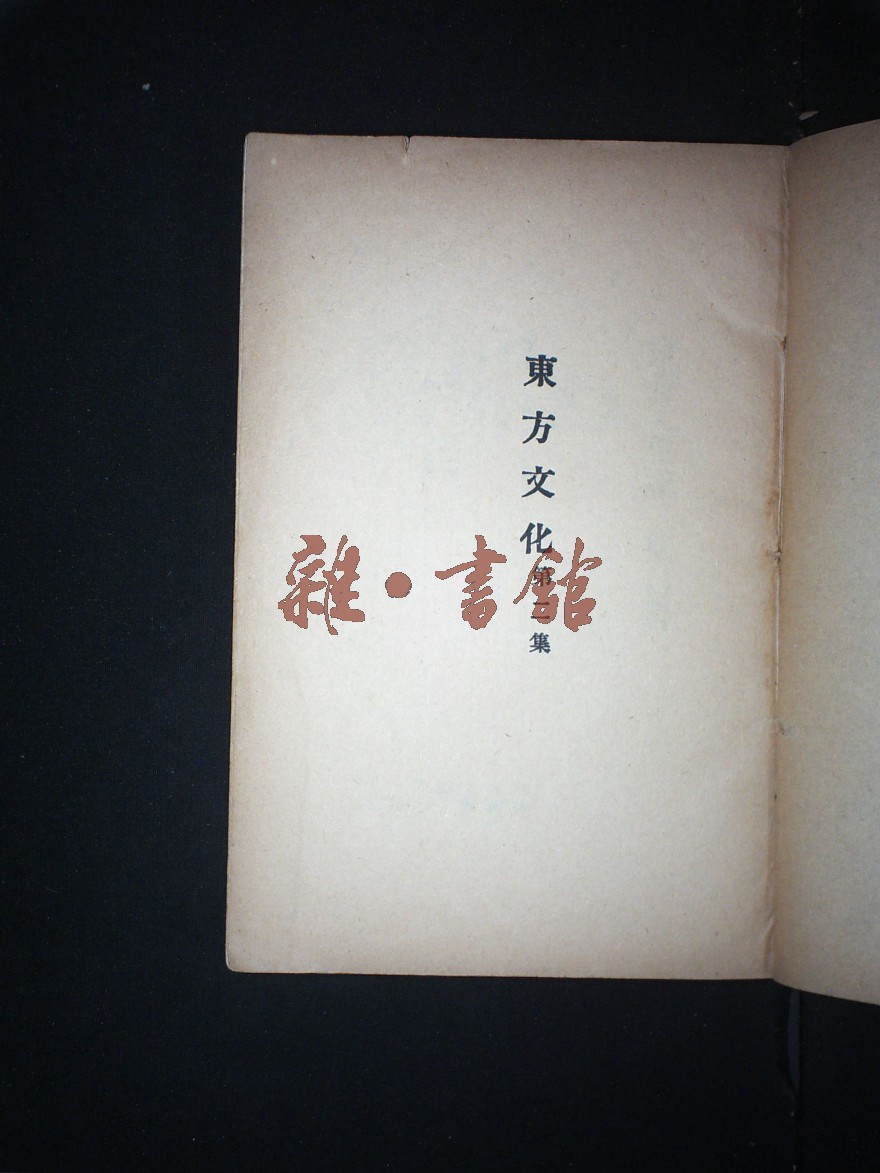 東方文化第二集
雜·書館